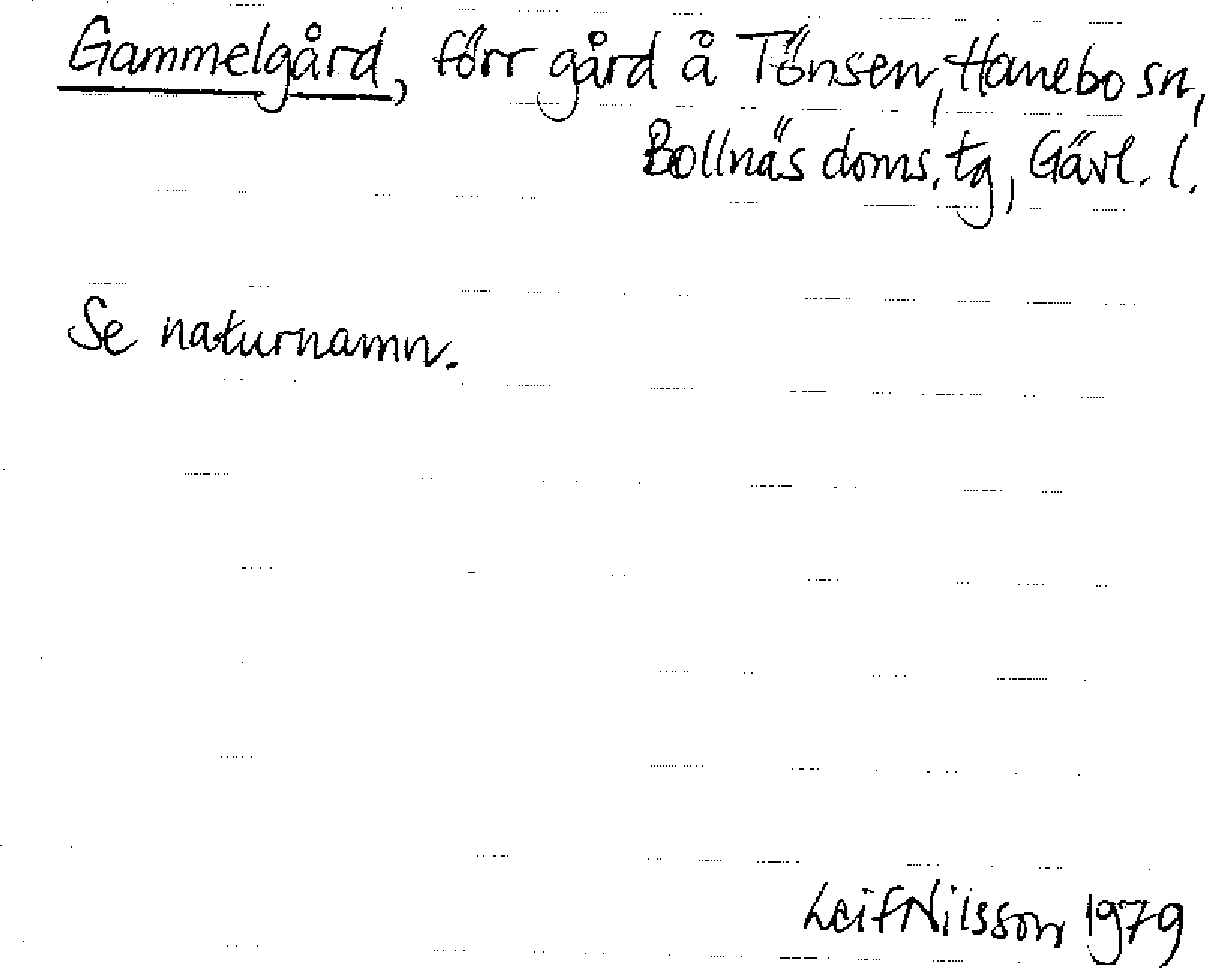 Gammelgård, förr gård å Tönsen, Hanebo sn,
Bollnäs doms.tg, Gävl. l.
Se naturnamn.
Leif Nilsson 1979